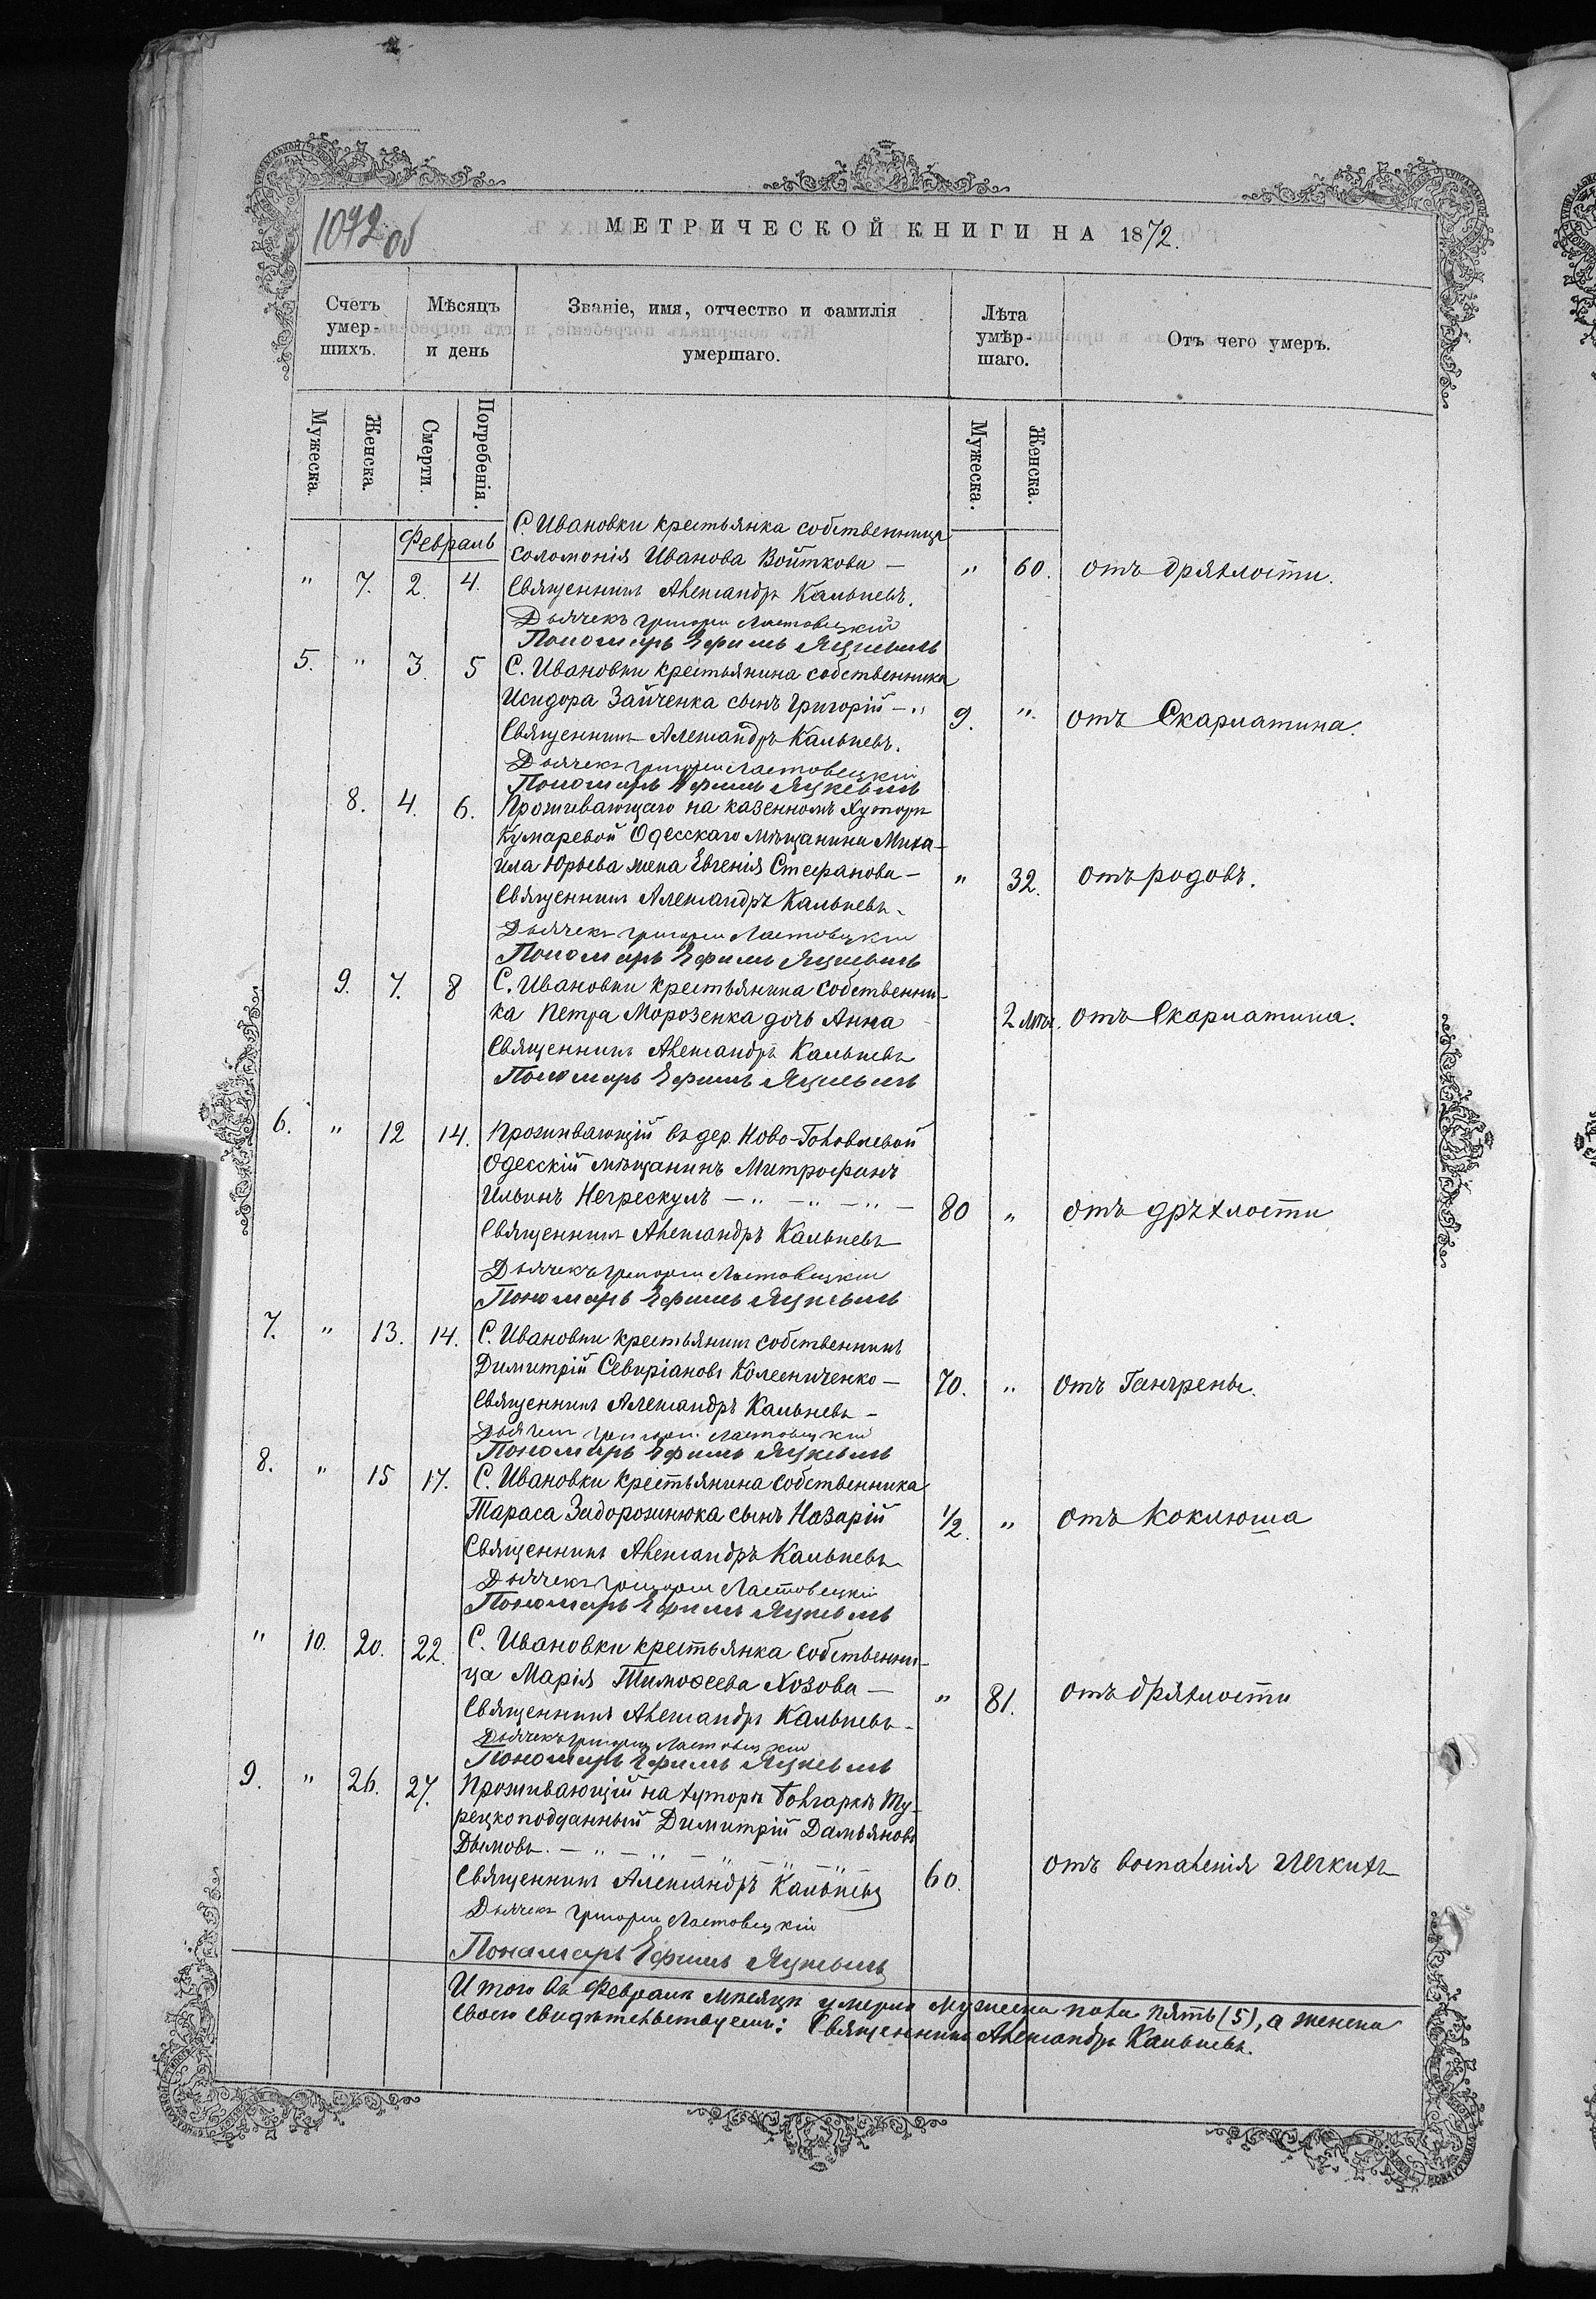 1092 об
МЕТРИЧЕСКОЙ КНИГИ НА 1872.
Счетъ умер-шихъ.
Мѣсяцъ и день
Званіе, имя, отчество и фамилія умершаго.
Лѣта умѣр-шаго.
Отъ чего умеръ.
Мужеска. Женска. Смерти. Погребенія. Мужеска. Женска.
Февраль
С. Ивановки крестьянка собственница
Соломонія Иванова Войткова —
" 7. 2. 4. Священникъ Александръ Кальневъ. " 60. отъ дряхлости.
Дьячекъ Григорій Ластовецкій
Пономарь Ефимъ Яцкевичъ
5. " 3. 5 С. Ивановки крестьянина собственника
Исидора Зайченка сынъ Григорій — " 9. " отъ Скарлатина.
Священникъ Александръ Кальневъ.
Дьячекъ Григорій Ластовецкій
Пономарь Ефимъ Яцкевичъ
8. 4. 6. Проживающаго на казенномъ хуторѣ
Кумаревой Одесскаго мѣщанина Миха-
ила Юрьева жена Евгенія Стефанова — " 32. отъ родовъ.
Священникъ Александръ Кальневъ.
Дьячекъ Григорій Ластовецкій
Пономарь Ефимъ Яцкевичъ
9. 7. 8 С. Ивановки крестьянина собственни-
ка Петра Морозенка дочь Анна 2 лѣтъ. отъ Скарлатина.
Священникъ Александръ Кальневъ
Пономарь Ефимъ Яцкевичъ
6. " 12 14. Проживающій въ дер. Ново-Головлевой
Одесскій мѣщанинъ Митрофанъ
Ильинъ Негрескулъ — " — " — " — 80 " отъ дрѣхлости
Священникъ Александръ Кальневъ
Дьячекъ Григорій Ластовецкій
Пономарь Ефимъ Яцкевичъ
7. " 13. 14. С. Ивановки крестьянинъ собственникъ
Димитрій Севиріановъ Колесниченко — 70. " отъ Гангрены.
Священникъ Александръ Кальневъ —
Дьячекъ Григорій Ластовецкій
Пономарь Ефимъ Яцкевичъ
8. " 15 17. С. Ивановки крестьянина собственника
Тараса Задорожнюка сынъ Назарій 1/2. " отъ коклюша
Священникъ Александръ Кальневъ
Дьячекъ Григорій Ластовецкій
Пономарь Ефимъ Яцкевичъ
" 10. 20. 22. С. Ивановки крестьянка собственни-
ца Марія Тимоѳеева Козова — " 81. отъ дряхлости
Священникъ Александръ Кальневъ.
Дьячекъ Григорій Ластовецкій
Пономарь Ефимъ Яцкевичъ
9. " 26. 27. Проживающій на хуторѣ Болгаркѣ Ту-
рецкоподданный Димитрій Дамьяновъ
Дымовъ. — " — " — " — " —
Священникъ Александръ Кальневъ 60. отъ воспаленія легкихъ
Дьячекъ Григорій Ластовецкій
Понамарь Ефимъ Яцкевичъ
Итого въ Февралѣ мѣсяцѣ умерло мужеска пола пять (5), а женска
свидѣтельствуемъ: Священникъ Александръ Кальневъ.